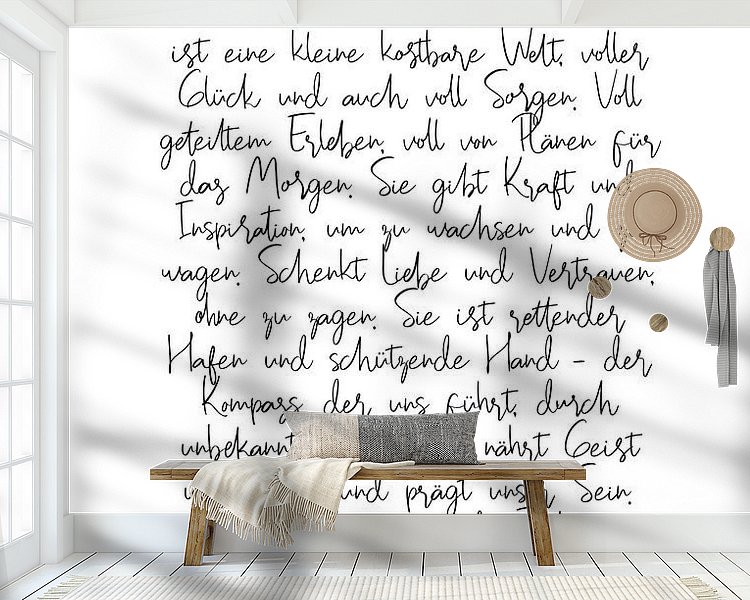 ist eine kleine kostbare Welt, voller
Glück und auch voll Sorgen. Voll
geteiltem Erleben, voll von Plänen für
das Morgen. Sie gibt Kraft und
Inspiration, um zu wachsen und
wagen. Schenkt Liebe und Vertrauen,
ohne zu zagen. Sie ist rettender
Hafen und schützende Hand - der
Kompass der uns führt, durch
nährt Geist
und prägt unser Sein.